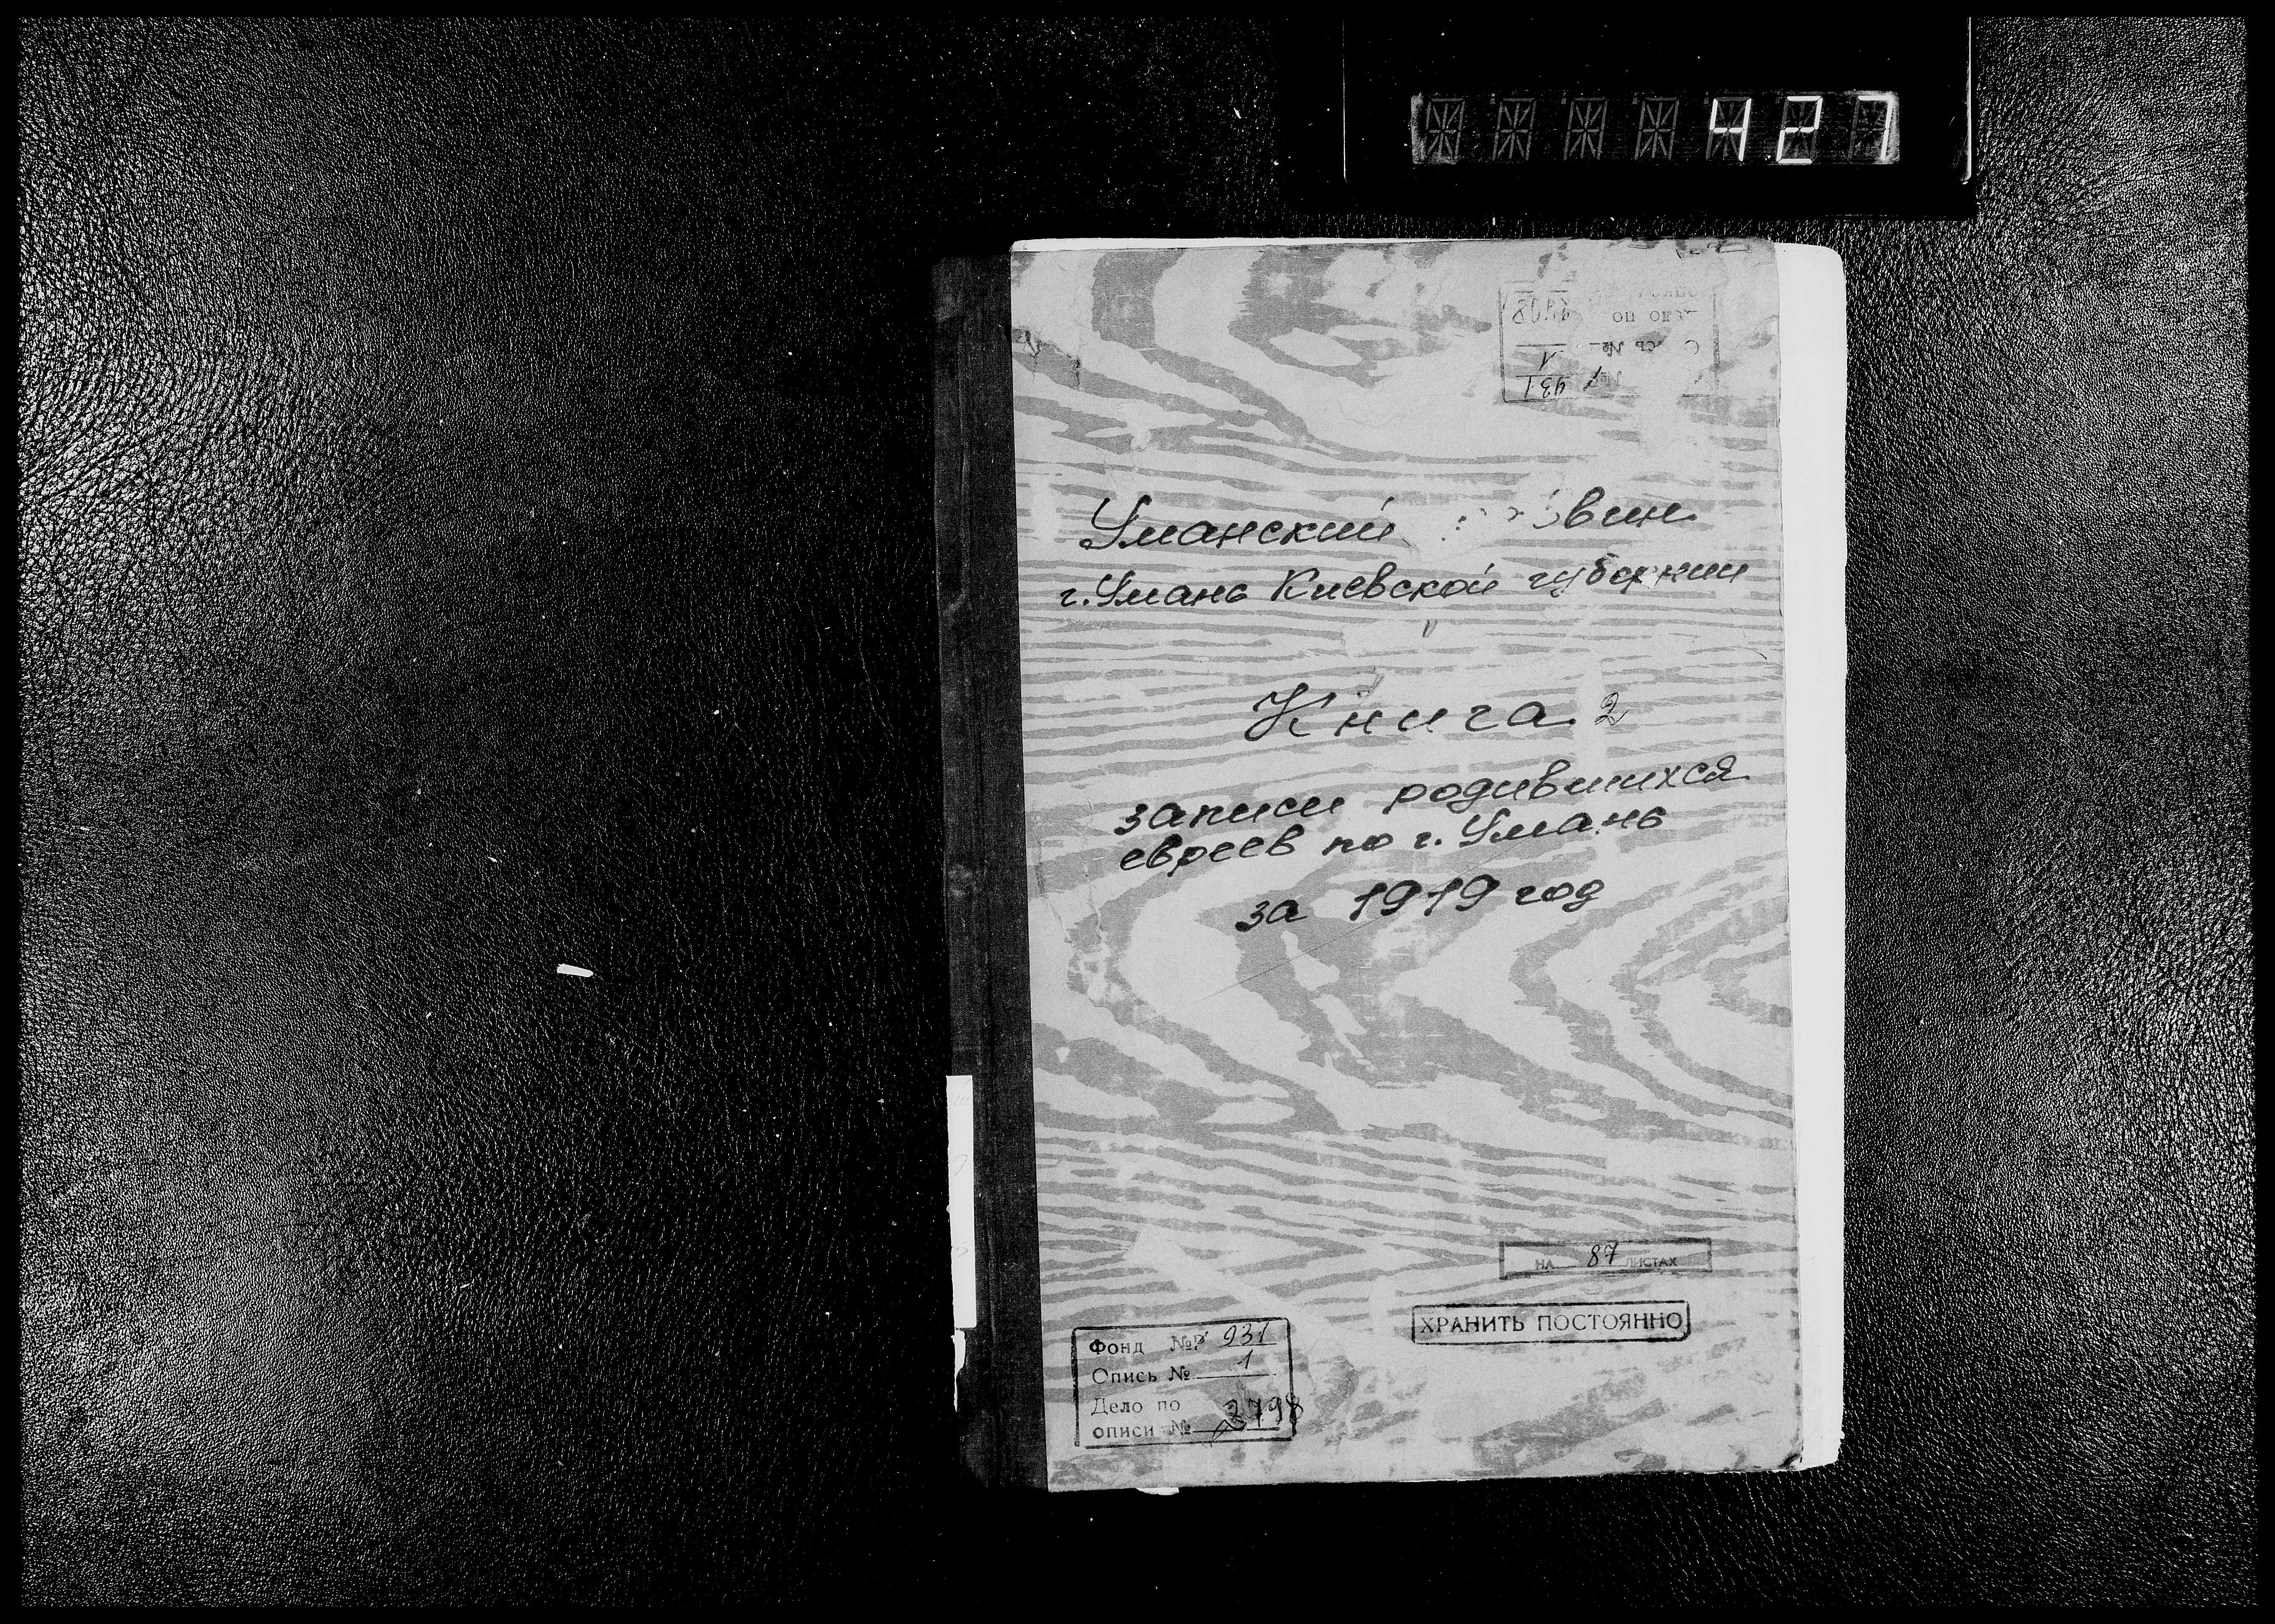 427
Уманский
г. Умань Киевской губернии
Книга 2
записи родившихся
евреев по г. Умань
за 1919 год
НА 87 ЛИСТАХ
ХРАНИТЬ ПОСТОЯННО
Фонд №Р 931
Опись № 1
Дело по
описи №